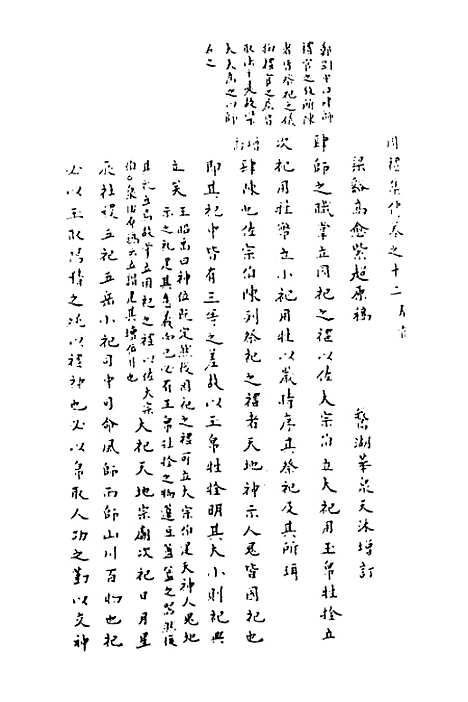 周禮集傳卷之十二
梁谿高愈紫超原稿 鵝湖華泉天沐增訂
肆師之職掌立國祀之禮以佐大宗伯立大祀用玉帛牲牷立
次祀用牲幣立小祀用牲以歲時序其祭祀及其所珥
肆陳也佐宗伯陳列祭祀之禮者天地神示人鬼皆國祀也
即其祀中皆有三等之差故以玉帛牲牷明其大小則祀典
立矣 王昭禹曰神位既定然後國祀之禮可立大宗伯建天神人鬼地
示之禮是其立義而已必有玉帛牲牷之物籩豆簠簋之器然後
其禮立焉故掌立國祀之禮以佐大宗
伯
大祀天地宗廟次祀日月星
辰社稷五祀五岳小祀司中司命風師雨師山川百物也祀
必以玉取陽精之流以禮神也必以帛取人功之勤以交神
曰肆師
禮官之所陳
者皆祭祀之儀